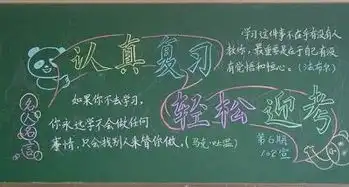 认真复习
学习这件事不在乎有没有人
教你，最重要的是在于自己有没
有觉悟和恒心。（法布尔）
轻松迎考
名人名言
如果你不去学习，
你永远学不会做任何
事情，只会找别人来替你做。（马克·吐温）
第6期
108室